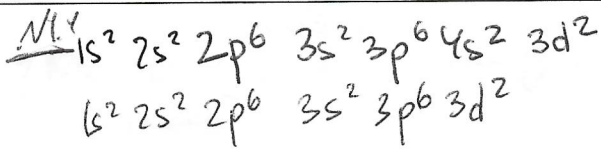 N1.4 1s² 2s² 2p⁶ 3s² 3p⁶ 4s² 3d²
1s² 2s² 2p⁶ 3s² 3p⁶ 3d²